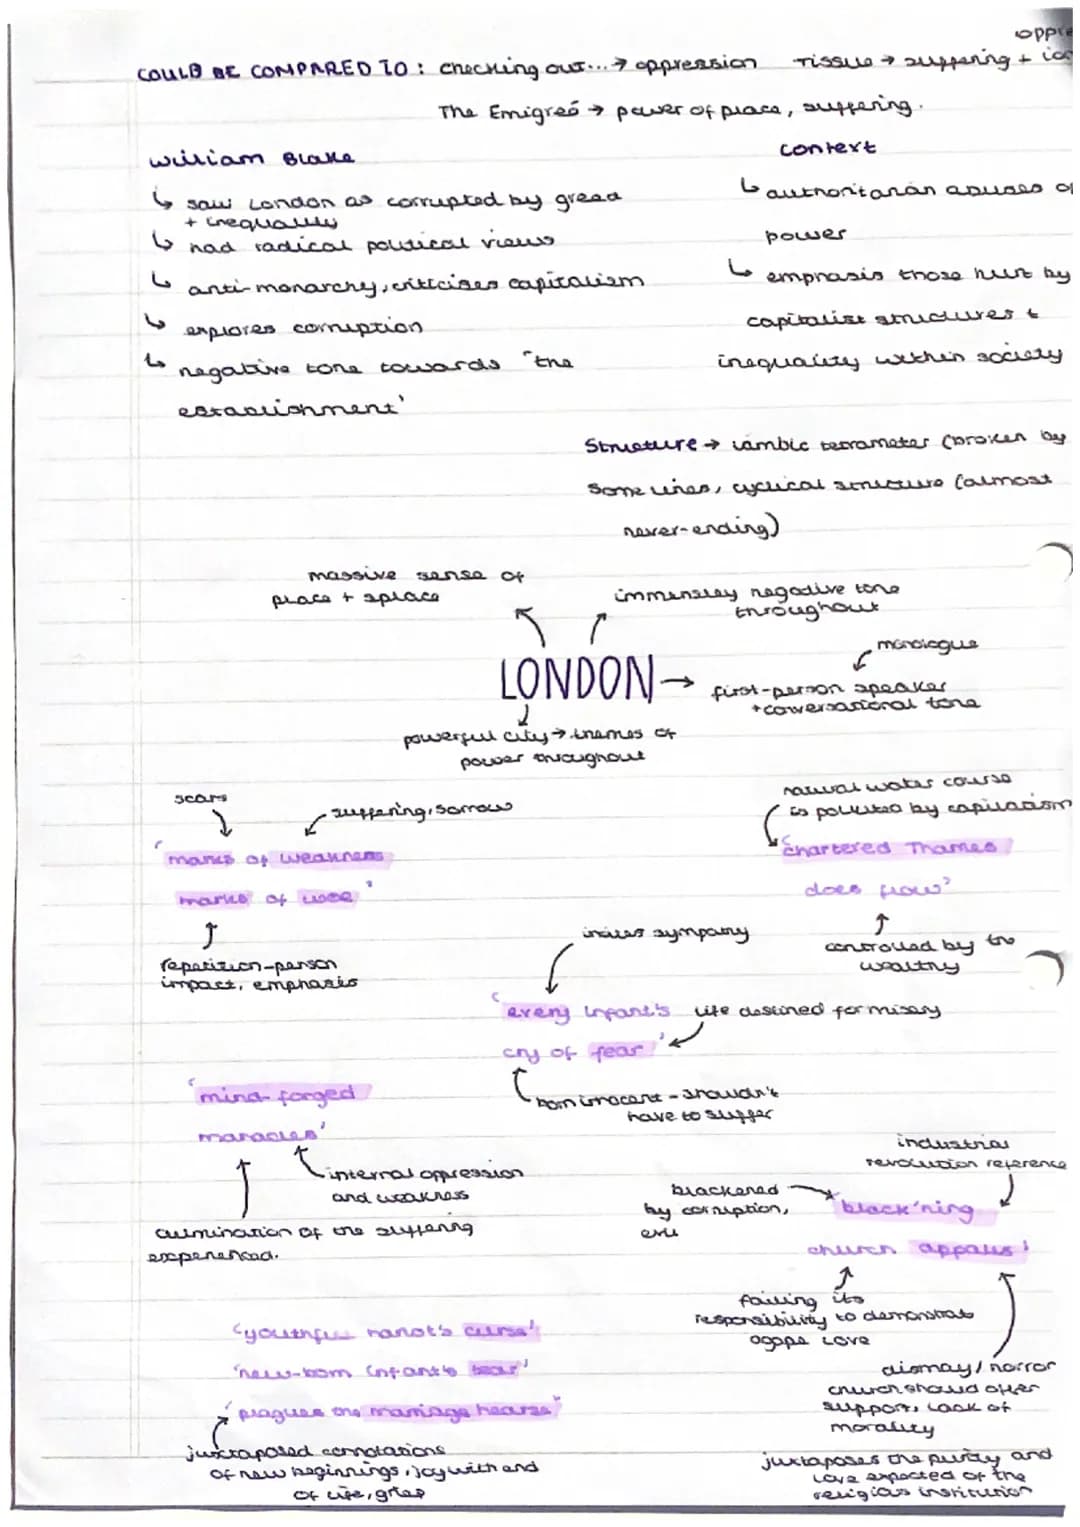 oppre
COULD BE COMPARED TO: Checking out...→ oppression Tissue → suffering +
The Emigreé → power of place, suffering.
William Blake
↳ saw London as corrupted by greed
+ inequality
↳ had radical political views
↳ anti-monarchy, criticises capitalism
↳ explores corruption
↳ negative tone towards "the
establishment'
context
↳ authoritarian abuses of
power
↳ emphasis those hurt by
capitalist structures +
inequality within society
Structure → iambic tetrameter (broken by
some lines, cyclical structure (almost
never-ending)
massive sense of
place + splace
immensley negative tone
throughout
LONDON
monologue
first-person speaker
+ conversational tone
powerful city → themes of
power throughout
scars
suffering, sorrow
'marks of weakness
marks of woe'
repetition-person
impact, emphasis
natural water course
is polluted by capitalism
'Chartered Thames
does flow'
controlled by the
wealthy
incites sympathy
'every Infant's
cry of fear'
life destined for misery
born innocent - shouldn't
have to suffer
'mind-forged
manacles'
internal oppression
and weakness
culmination of the suffering
experienced.
industrial
revolution reference
blackened
by corruption,
evil
'black'ning
church appalls'
failing its
responsibility to demonstrate
agape love
dismay/horror
church should offer
support, lack of
morality
juxtaposes the purity and
love expected of the
religious institution
'youthful harlot's curse'
'new-born infant's tear'
'plagues the marriage hearse'
juxtaposed connotations
of new beginnings, joy with end
of life, grief